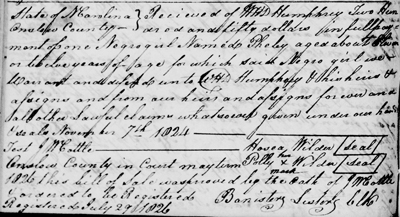 State of N Carolina } Received of Wm D Humphrey Two Hun
Onslow County } dred and fifty dollars in full pay
ment of one Negro girl Named Phoby aged about Eleven
or twelve years of age for which said Negro girl we
Warrant and defend unto Wm D Humphrey & his heirs &
assigns and from our heirs and assigns forever and
all other Lawful claims whatsoever given under our hands
& seals November 7th 1824
Test J W Cattle Hosea Wilder seal
Onslow County in Court may term Polly her x mark Wilder seal
1826 this bill of Sale was proved by the oath of J W Cattle
& ordered to be Registered
Registered July 29 1826 Banister Lester Clk